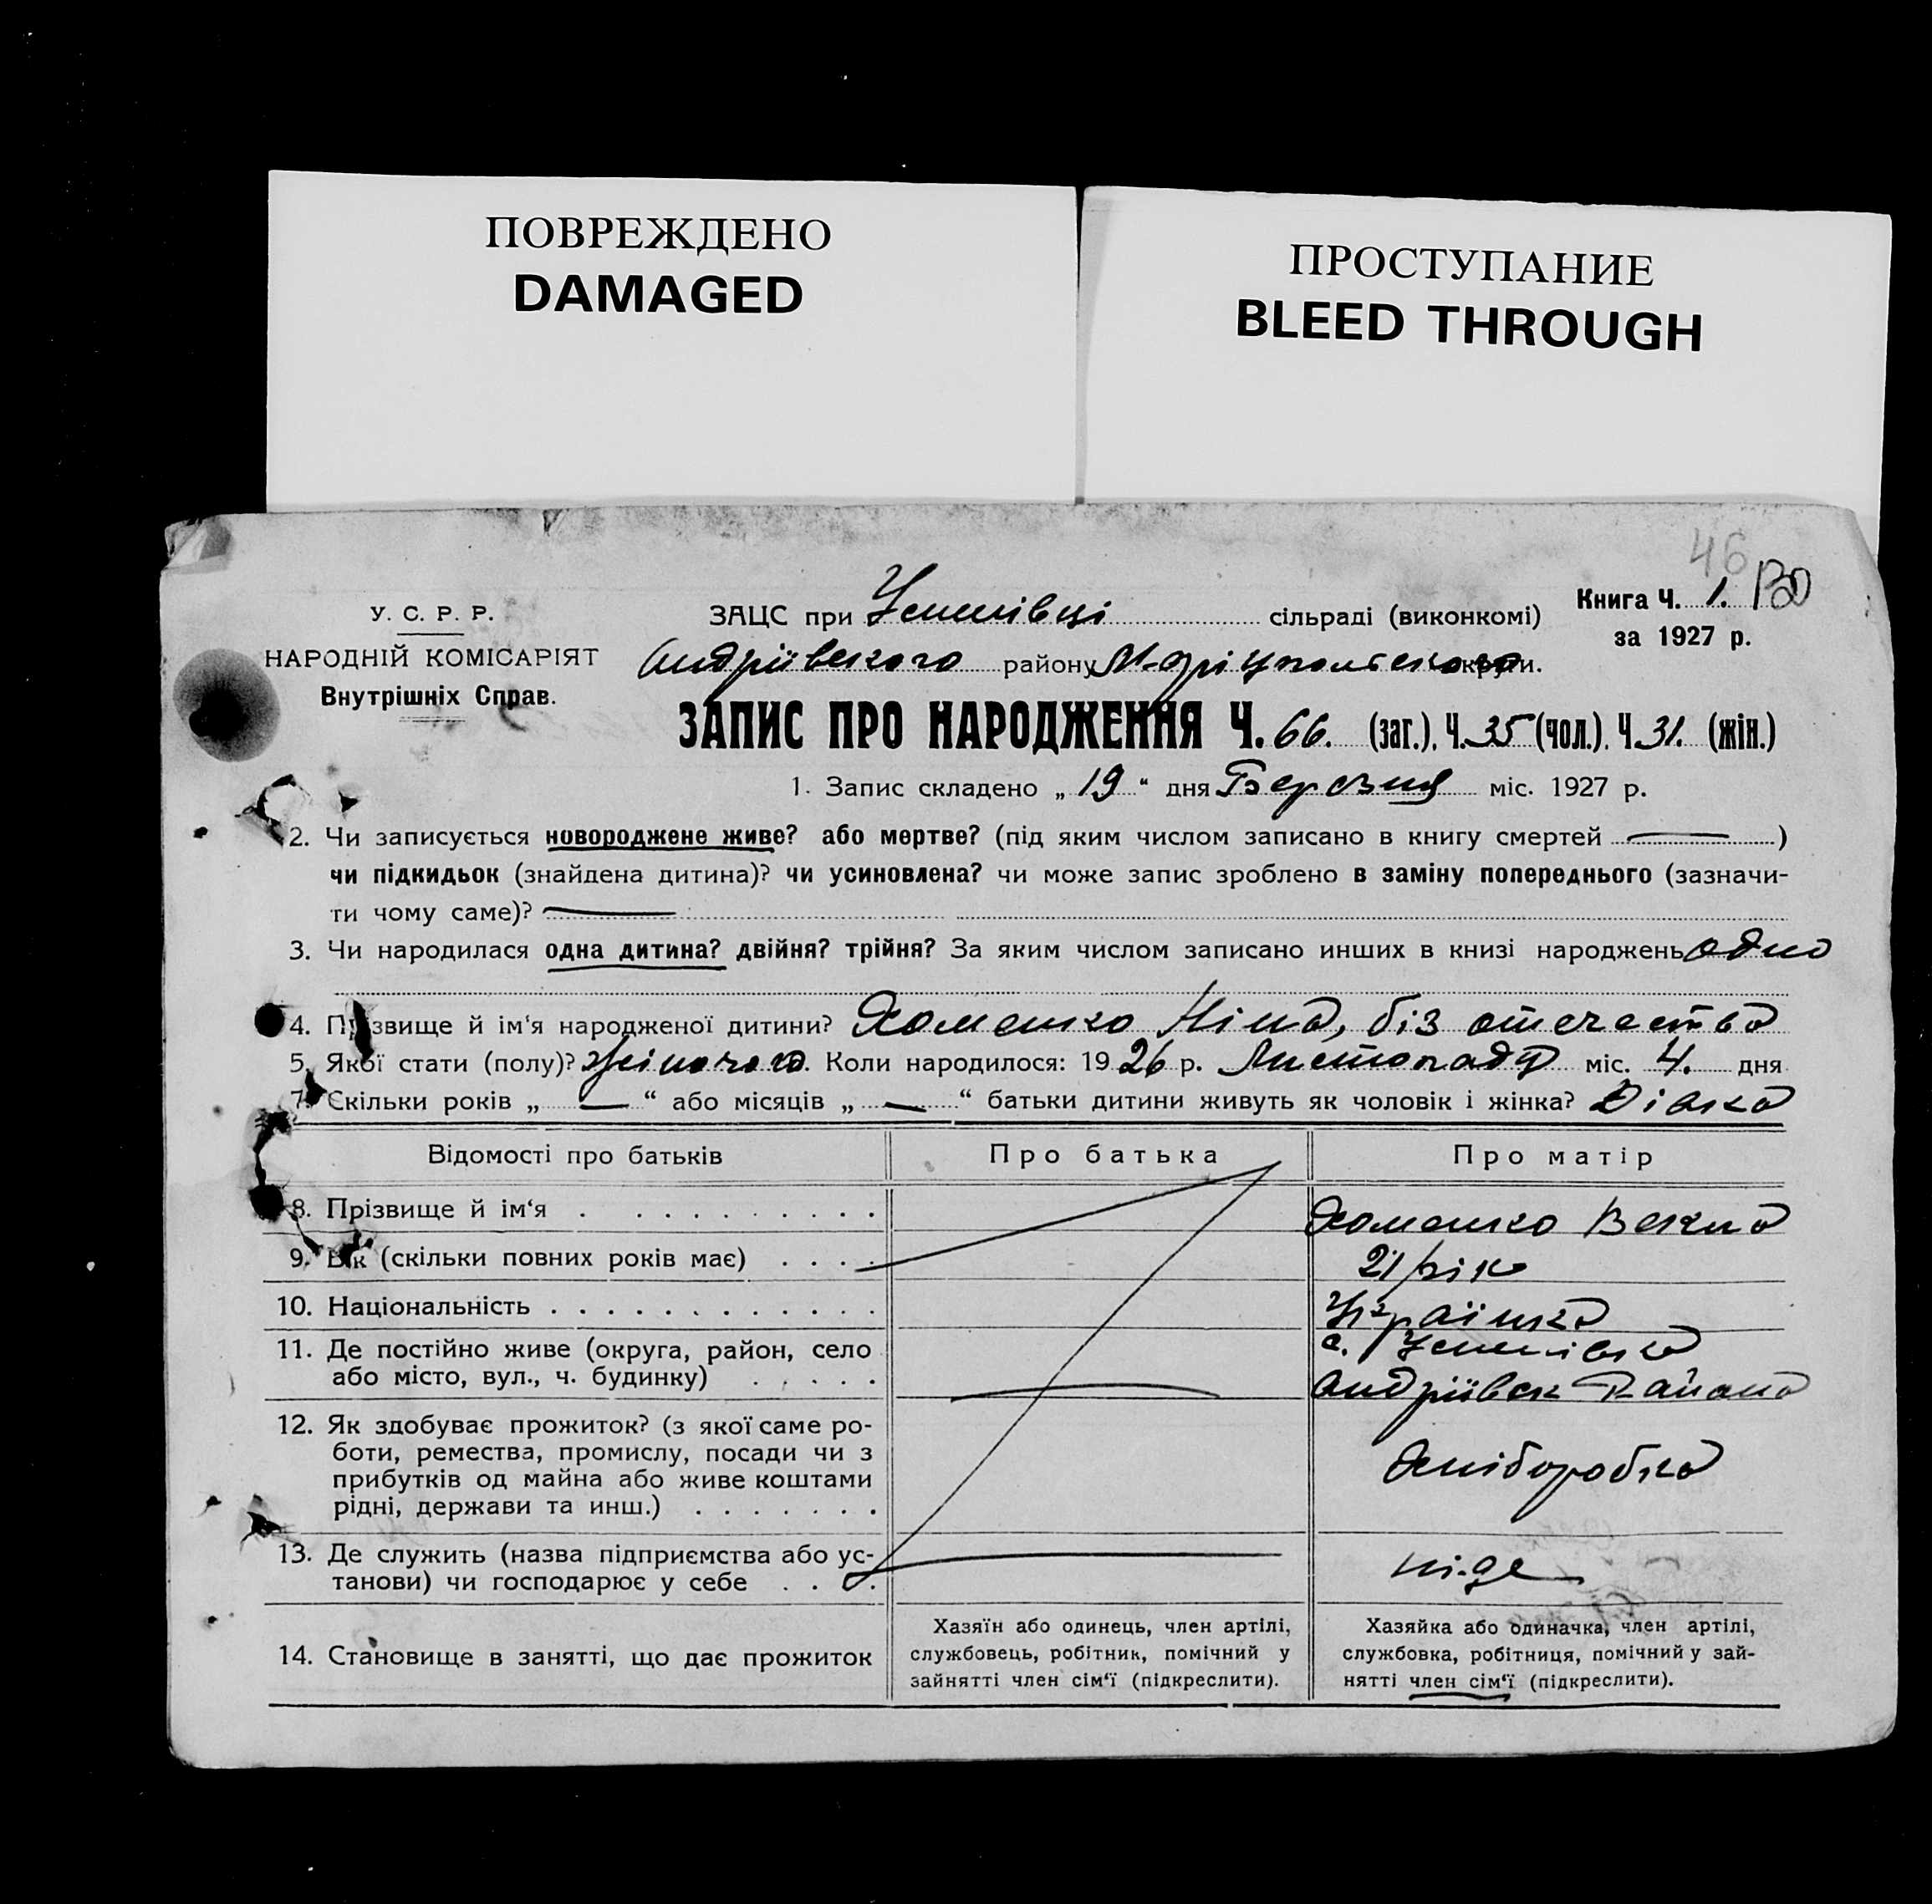 ПОВРЕЖДЕНО
DAMAGED
ПРОСТУПАНИЕ
BLEED THROUGH
46
У. С. Р. Р.
НАРОДНІЙ КОМІСАРІЯТ
Внутрішніх Справ.
ЗАЦС при Успенівці сільраді (виконкомі)
Книга Ч. 1.
за 1927 р.
Андріївского району Маріупольского округи.
ЗАПИС ПРО НАРОДЖЕННЯ Ч. 66. (заг.). Ч. 35 (чол.). Ч 31. (жін.)
1. Запис складено „ 19 “ дня Березня міс. 1927 р.
2. Чи записується новороджене живе? або мертве? (під яким числом записано в книгу смертей — )
чи підкидьок (знайдена дитина)? чи усиновлена? чи може запис зроблено в заміну попереднього (зазначи-
ти чому саме)? —
3. Чи народилася одна дитина? двійня? трійня? За яким числом записано инших в книзі народжень одно
4. Прізвище й ім‘я народженої дитини? Хоменко Ніна, біз отечества
5. Якої стати (полу)? жіночого. Коли народилося: 1926 р. Листопаду міс. 4. дня
7. Скільки років „ — “ або місяців „ — “ батьки дитини живуть як чоловік і жінка? Дівка
Відомості про батьків
Про батька
Про матір
8. Прізвище й ім‘я . . . . . . . . . . .
Хоменко Векла
9. Вік (скільки повних років має) . . . .
21 рік
10. Національність . . . . . . . . . . . .
Українка
11. Де постійно живе (округа, район, село
або місто, вул., ч. будинку) . . . . .
с. Успенівка
Андріївск Района
12. Як здобуває прожиток? (з якої саме ро-
боти, ремества, промислу, посади чи з
прибутків од майна або живе коштами
рідні, держави та инш.) . . . . . . .
Хліборобка
13. Де служить (назва підприємства або ус-
танови) чи господарює у себе . . . .
ні-де
14. Становище в занятті, що дає прожиток
Хазяїн або одинець, член артілі,
службовець, робітник, помічний у
зайнятті член сім‘ї (підкреслити).
Хазяйка або одиначка, член артілі,
службовка, робітниця, помічний у зай-
нятті член сім‘ї (підкреслити).